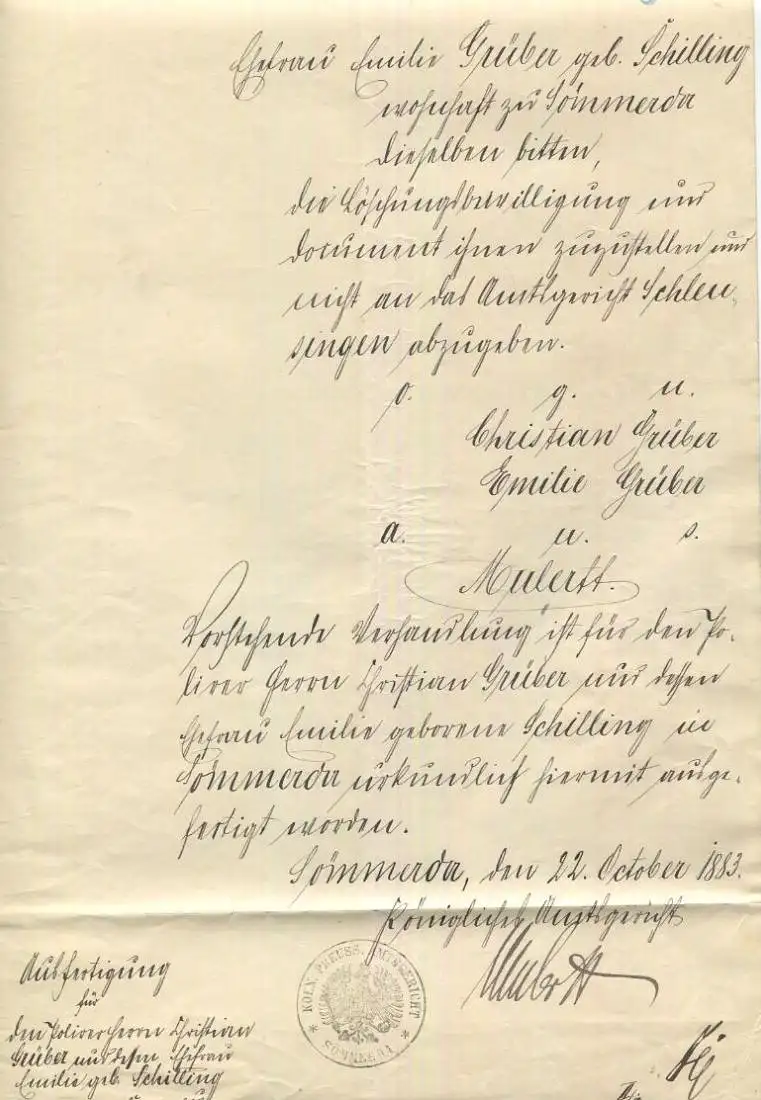 Ehefrau Emilie Grüber geb. Schilling
wohnhaft zu Sömmerda
dieselben bitten,
die Löschungsbewilligung und
document ihnen zuzustellen und
nicht an das Amtsgericht Schleu-
singen abzugeben.
v. g. u.
Christian Grüber
Emilie Grüber
a. u. s.
Mulertt.
Vorstehende Verhandlung ist für den Po-
lirer Herrn Christian Grüber und dessen
Ehefrau Emilie geborene Schilling in
Sömmerda urkundlich hiermit ausge-
fertigt worden.
Sömmerda, den 22. October 1883.
Königliches Amtsgericht
KÖN. PREUSS. AMTSGERICHT
* SÖMMERDA *
Ausfertigung
für
den Polirer Herrn Christian
Grüber und dessen Ehefrau
Emilie geb. Schilling